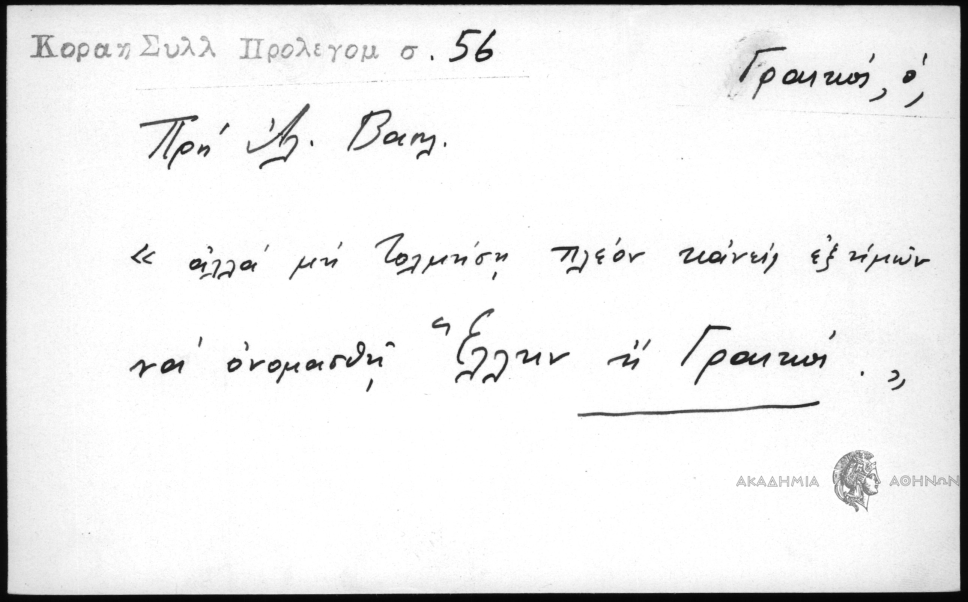 Κοραη Συλλ Προλεγομ σ. 56
Γραικός, ὁ,
Πρὸς Ἀλ. Βασιλ.
« ἀλλὰ μὴ τολμήσῃ πλέον κἀνεὶς ἐξ ἡμῶν
νὰ ὀνομασθῇ Ἕλλην ἢ Γραικός . »
ΑΚΑΔΗΜΙΑ ΑΘΗΝΩΝ